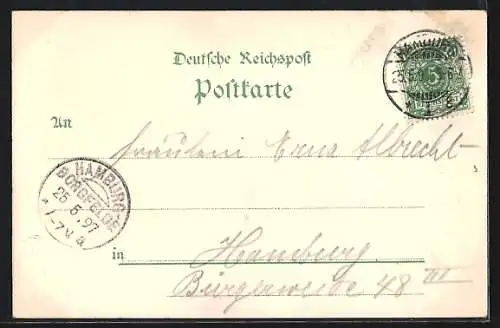 Deutsche Reichspost
Postkarte
An Fräulein Erna Albrecht
HAMBURG-
BORGFELDE
25 5.97
7-7½ a
in Hamburg
Bürgerweide 48 III
5